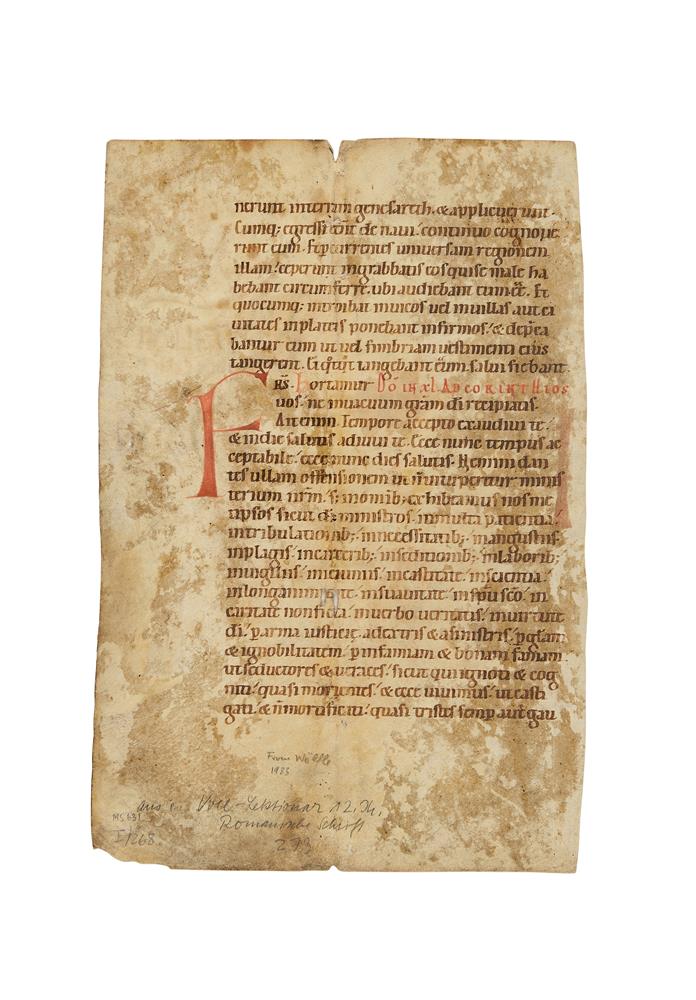 nerunt interram genesareth. & applicuerunt.
Cumq; egressi eēnt de naui. continuo cognoue
runt eum. Et pcurrentes uniuersam regionem
illam. ceperunt in grabbatis eos qui se male ha
bebant circumferre. ubi audiebant eum ēē. Et
quocumq; introibat in uicos uel in uillas aut ci
uitates in plateis ponebant infirmos. & depca
bantur eum ut uel fimbriam uestimenti eius
tangerent. Et qtqt tangebant eum salui fiebant.
FRS. hortamur Dō IN XL. AD CORINTHIOS
uos. ne in uacuum grām dī recipiatis.
Ait enim. Tempore accepto exaudiui te.
& in die salutis adiuui te. Ecce nunc tempus ac
ceptabile. ecce nunc dies salutis. Nemini dan
tes ullam offensionem ut ñ uituperetur minis
terium nrm. s; in omīb; exhibeamus nosme
tipsos sicut dī ministros. in multa patientia.
in tribulationib; in necessitatib; in angustiis.
in plagis. in carcerib; in seditionib; in laborib;
in uigiliis. in ieiuniis. in castitate. in scientia.
in longanimitate. in suauitate. in spū scō. in
caritate non ficta. in uerbo ueritatis. in uirtute
dī. p arma iusticie. a dextris & a sinistris. p glam
& ignobilitatem. p infamiam & bonam famam
ut seductores & ueraces. sicut qui ignoti & cog
niti. quasi morientes. & ecce uiuimus. ut casti
gati. & ñ mortificati. quasi tristes semp aut gau
1983
aus Voll-Lektionar 12. Jh.
MS 631
Romanische Schrift
I/268